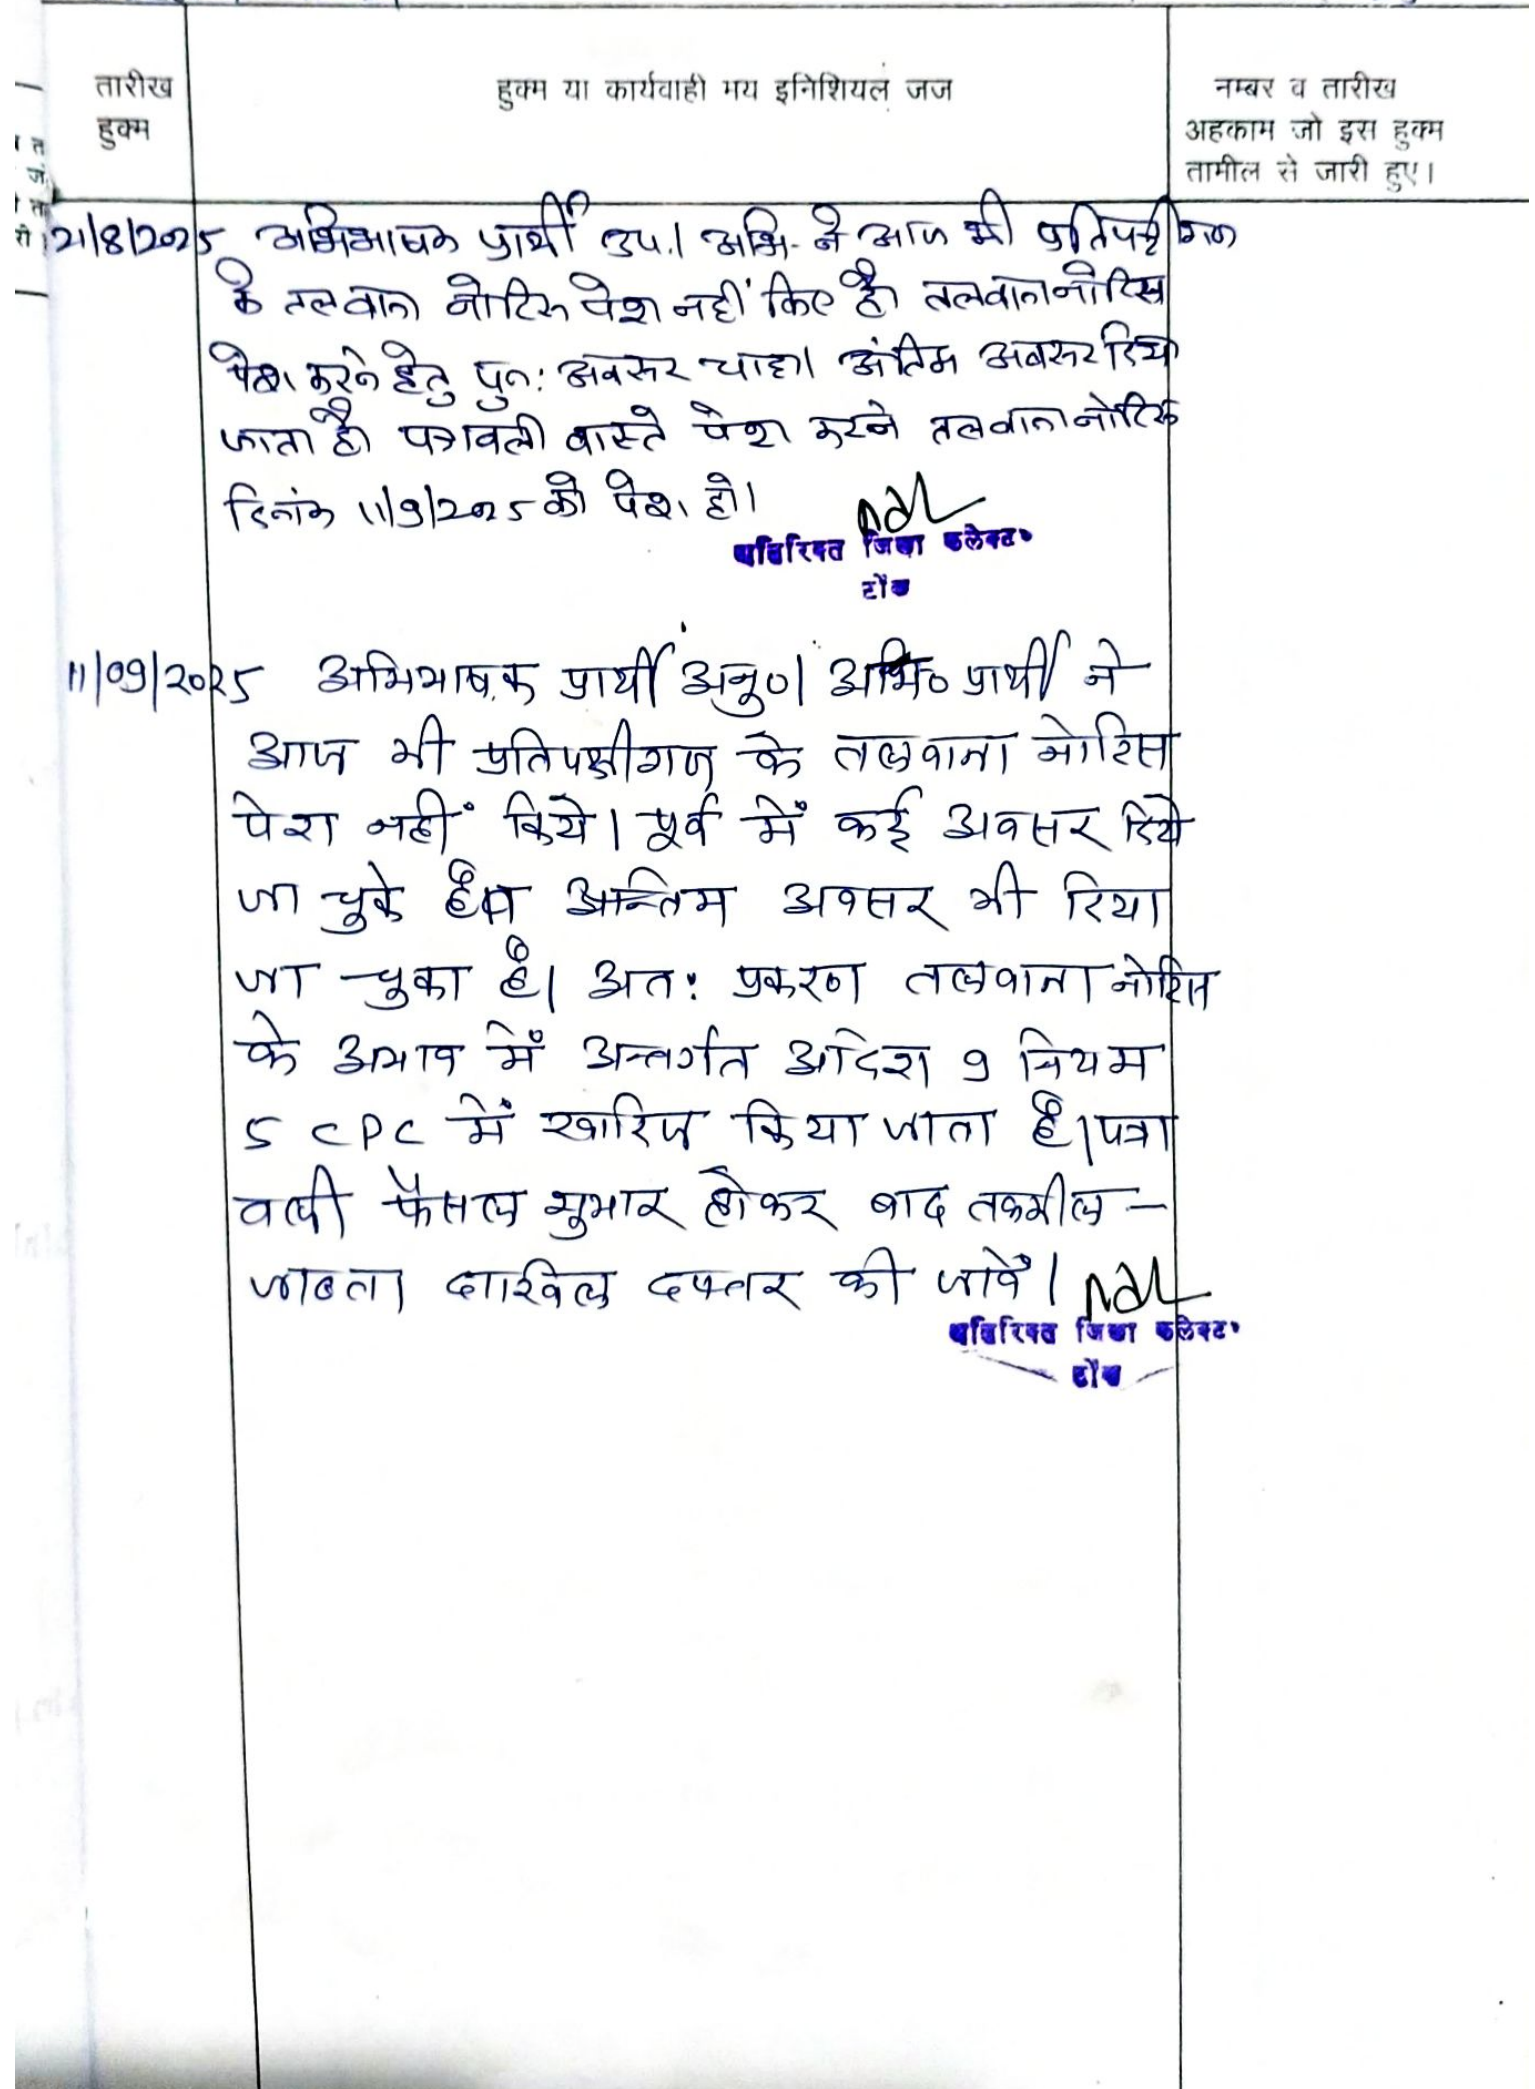 तारीख
हुक्म
हुक्म या कार्यवाही मय इनिशियल जज
नम्बर व तारीख
अहकाम जो इस हुक्म
तामील से जारी हुए।
21/8/2025 अभिभाषक प्रार्थी उप.। अभि. ने आज भी प्रतिपक्षीगण
के तलवाना नोटिस पेश नहीं किए है। तलवाना नोटिस
पेश करने हेतु पुन: अवसर चाहा। अंतिम अवसर दिया
जाता है। पत्रावली वास्ते पेश करने तलवाना नोटिस
दिनांक 11/9/2025 को पेश हो।
अतिरिक्त जिला कलेक्टर
टोंक
11/09/2025 अभिभाषक प्रार्थी अनु०। अभि० प्रार्थी ने
आज भी प्रतिपक्षीगण के तलवाना नोटिस
पेश नहीं किये। पूर्व में कई अवसर दिये
जा चुके है अन्तिम अवसर भी दिया
जा चुका है। अत: प्रकरण तलवाना नोटिस
के अभाव में अन्तर्गत आदेश 9 नियम
5 CPC में खारिज किया जाता है। पत्रा
वली फैसल शुमार होकर बाद तकमील -
जाब्ता दाखिल दफ्तर की जावें।
अतिरिक्त जिला कलेक्टर
टोंक